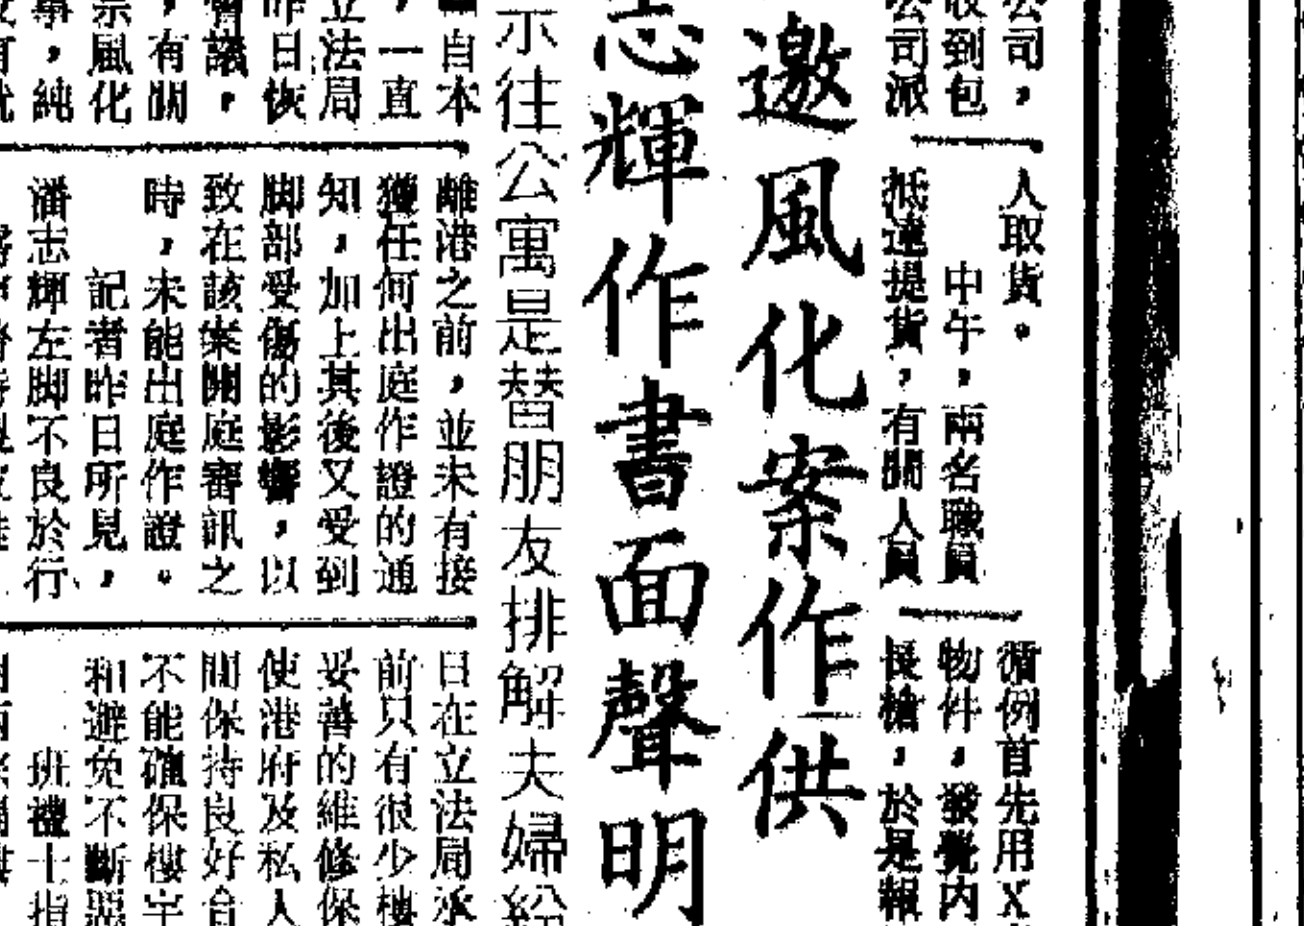 公司，
收到包
公司派
人取貨。
中午，兩名職員
抵達提貨，有關人員
循例首先用X
物件，發覺內
長槍，於是報
邀風化案作供
志輝作書面聲明
示往公寓是替朋友排解夫婦紛
自本
，一直
立法局
昨日恢
會議，
，有關
宗風化
事，純
離港之前，並未有接
獲任何出庭作證的通
知，加上其後又受到
脚部受傷的影響，以
致在該案開庭審訊之
時，未能出庭作證。
記者昨日所見，
潘志輝左脚不良於行、
日在立法局承
前只有很少樓
妥善的維修保
使港府及私人
間保持良好合
不能確保樓宇
和避免不斷惡
班禮士指